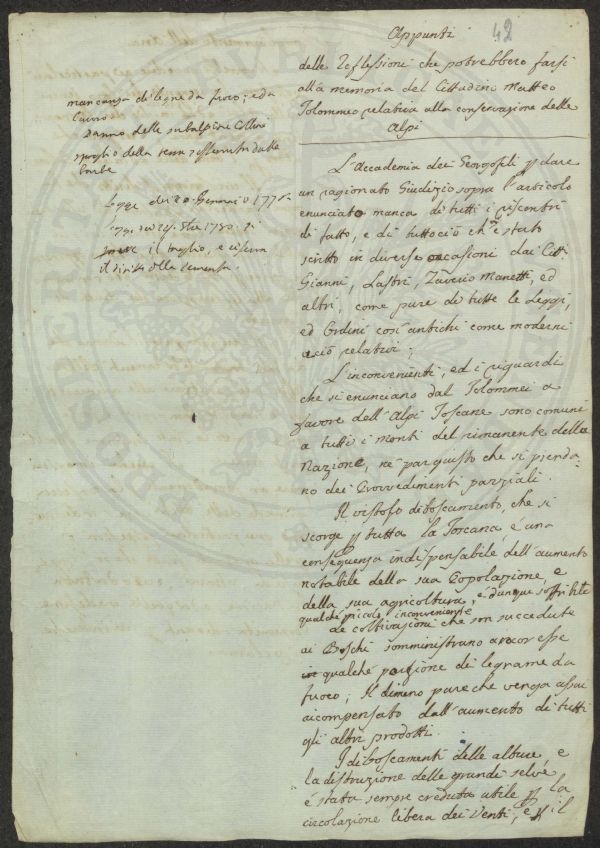 42
Appunti
delle Reflessioni che potrebbero farsi
alla memoria del Cittadino Matteo
Tolommeo relativa alla conservazione delle
Alpi
mancanza di legne da fuoco; e da
lavoro
danno delle subalpine Colline
spoglio della terra
barbe
Legge dei 20. Gennaio 1776
1780.
il taglio, e riserva
il diritto della sementa.
L'Accademia dei Georgofili p dare
un ragionato Giudizio sopra l'articolo
enunciato manca di tutti i riscontri
di fatto, e di tuttociò ch'è stato
scritto in diverse occasioni dai Citt.
Gianni, Lastri, Zaverio Manetti, ed
altri, come pure di tutte le Leggi,
ed Ordini così antichi come moderni
a ciò relativi;
L'inconvenienti, ed i riguardi
che si enunciano dal Tolommei a
favore dell'Alpi Toscane sono comuni
a tutti i monti del rimanente della
Nazione, né par giusto che si prenda
no dei Provvedimenti parziali.
Il vistoso diboscamento, che si
scorge p tutta la Toscana è una
conseguenza indispensabile dell'aumento
notabile della sua Popolazione, e
della sua agricoltura, e dunque soffribile
qualche piccolo inconveniente
Le coltivazioni che son succedute
ai Boschi somministrano ancor esse
in qualche porzione di legname da
fuoco; Il dimeno pare che venga assai
ricompensato dall'aumento di tutti
gli altri prodotti.
I diboscamenti delle alture, e
la distruzione delle grandi selve
è stata sempre creduta utile p la
circolazione libera dei Venti, e p il